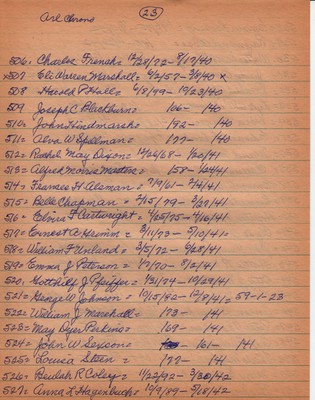 (23)
506 = Charles French = 12/28/72 - 8/17/40
x507 Eli Warren Marshall = 6/2/57 - 3/8/40 x
508 Harold P Hall = 6/8/99 - 10/23/40
509 Joseph C Blackburn = 106 - /40
510 = John Hindmarsh = 192 - /40
511 = Alva W Spellman = 177 - /40
512 = Rachel May Dixon = 12/26/68 - 1/20/41
513 = Alfred Morris = 158 - 1/24/41
514 = Frances H Alsman = 7/9/61 - 2/14/41
515 = Belle Chapman = 2/15/79 - 2/27/41
516 = F Cartwright = 4/25/75 - 4/16/41
517 = Ernest C = 3/11/73 - 5/10/41 =
518 = William F Unland = 3/5/72 - 6/28/41
519 = Emma J Peterson = 1/7/70 - 8/2/41
520 = Gotthilf J Pfeiffer = 1/31/79 - 10/29/41
521 = George W Johnson = 10/15/82 - 12/8/41 = 59-1-23
522 = William J Marshall = 173 - /41
523 = May Dyer Perkins = 169 - /41
524 = John W Sexson = 161 - /41
525 = Louisa Steen = 177 - /41
526 = Beulah R Coley = 11/22/92 - 3/30/42
527 = Anna L Hagenbuch = 10/9/89 - 5/18/42